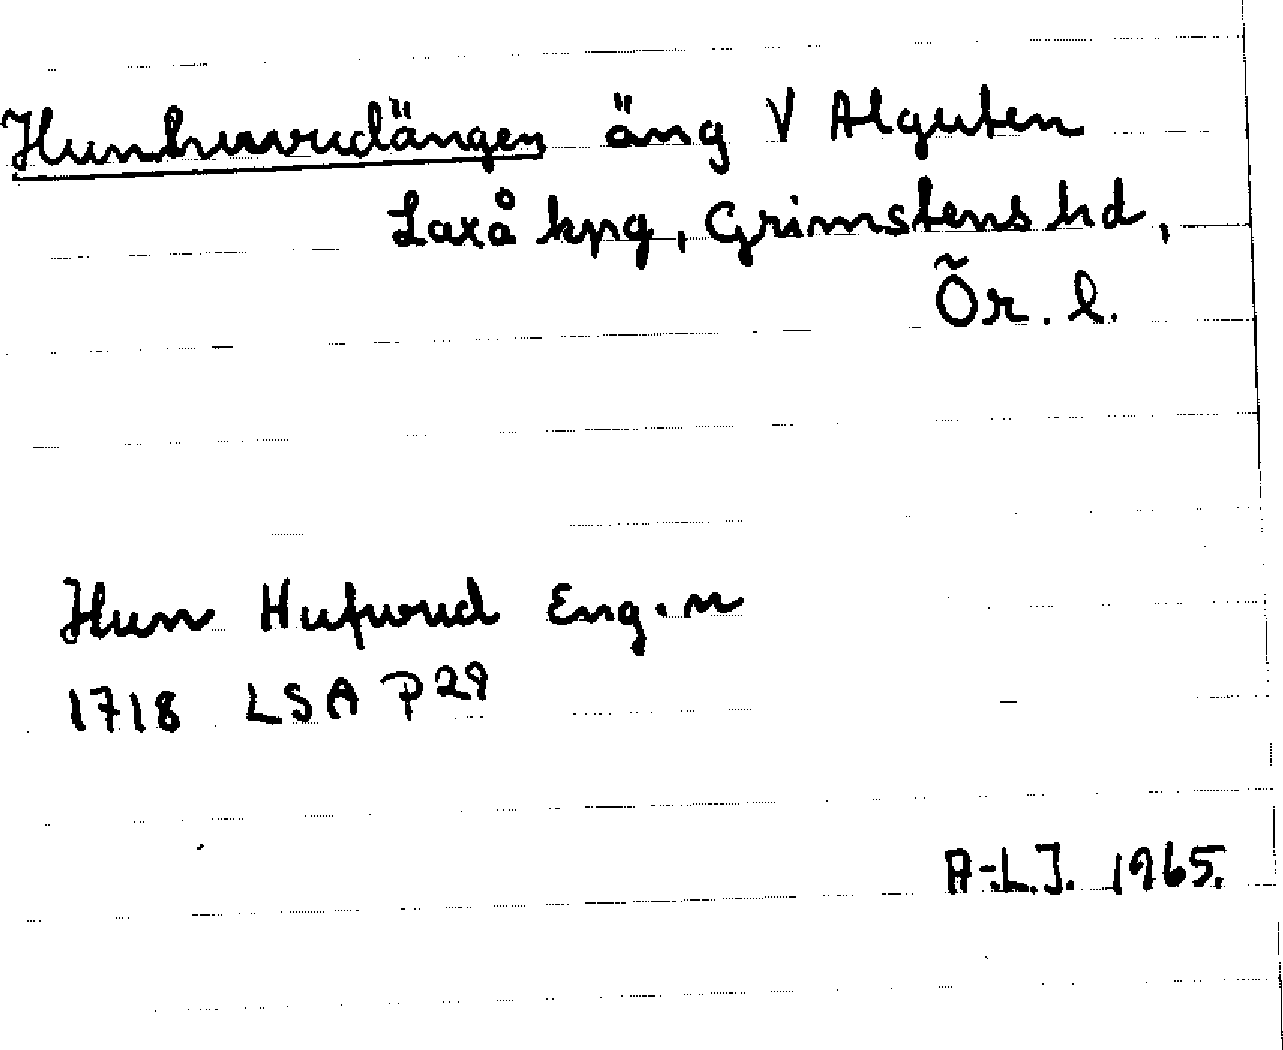 Hunhuvudängen äng V Alguten
Laxå kpg, Grimstens hd,
Ör. l.
Hun Hufwud Eng.n
1718 LSA P29
A-L.J. 1965.